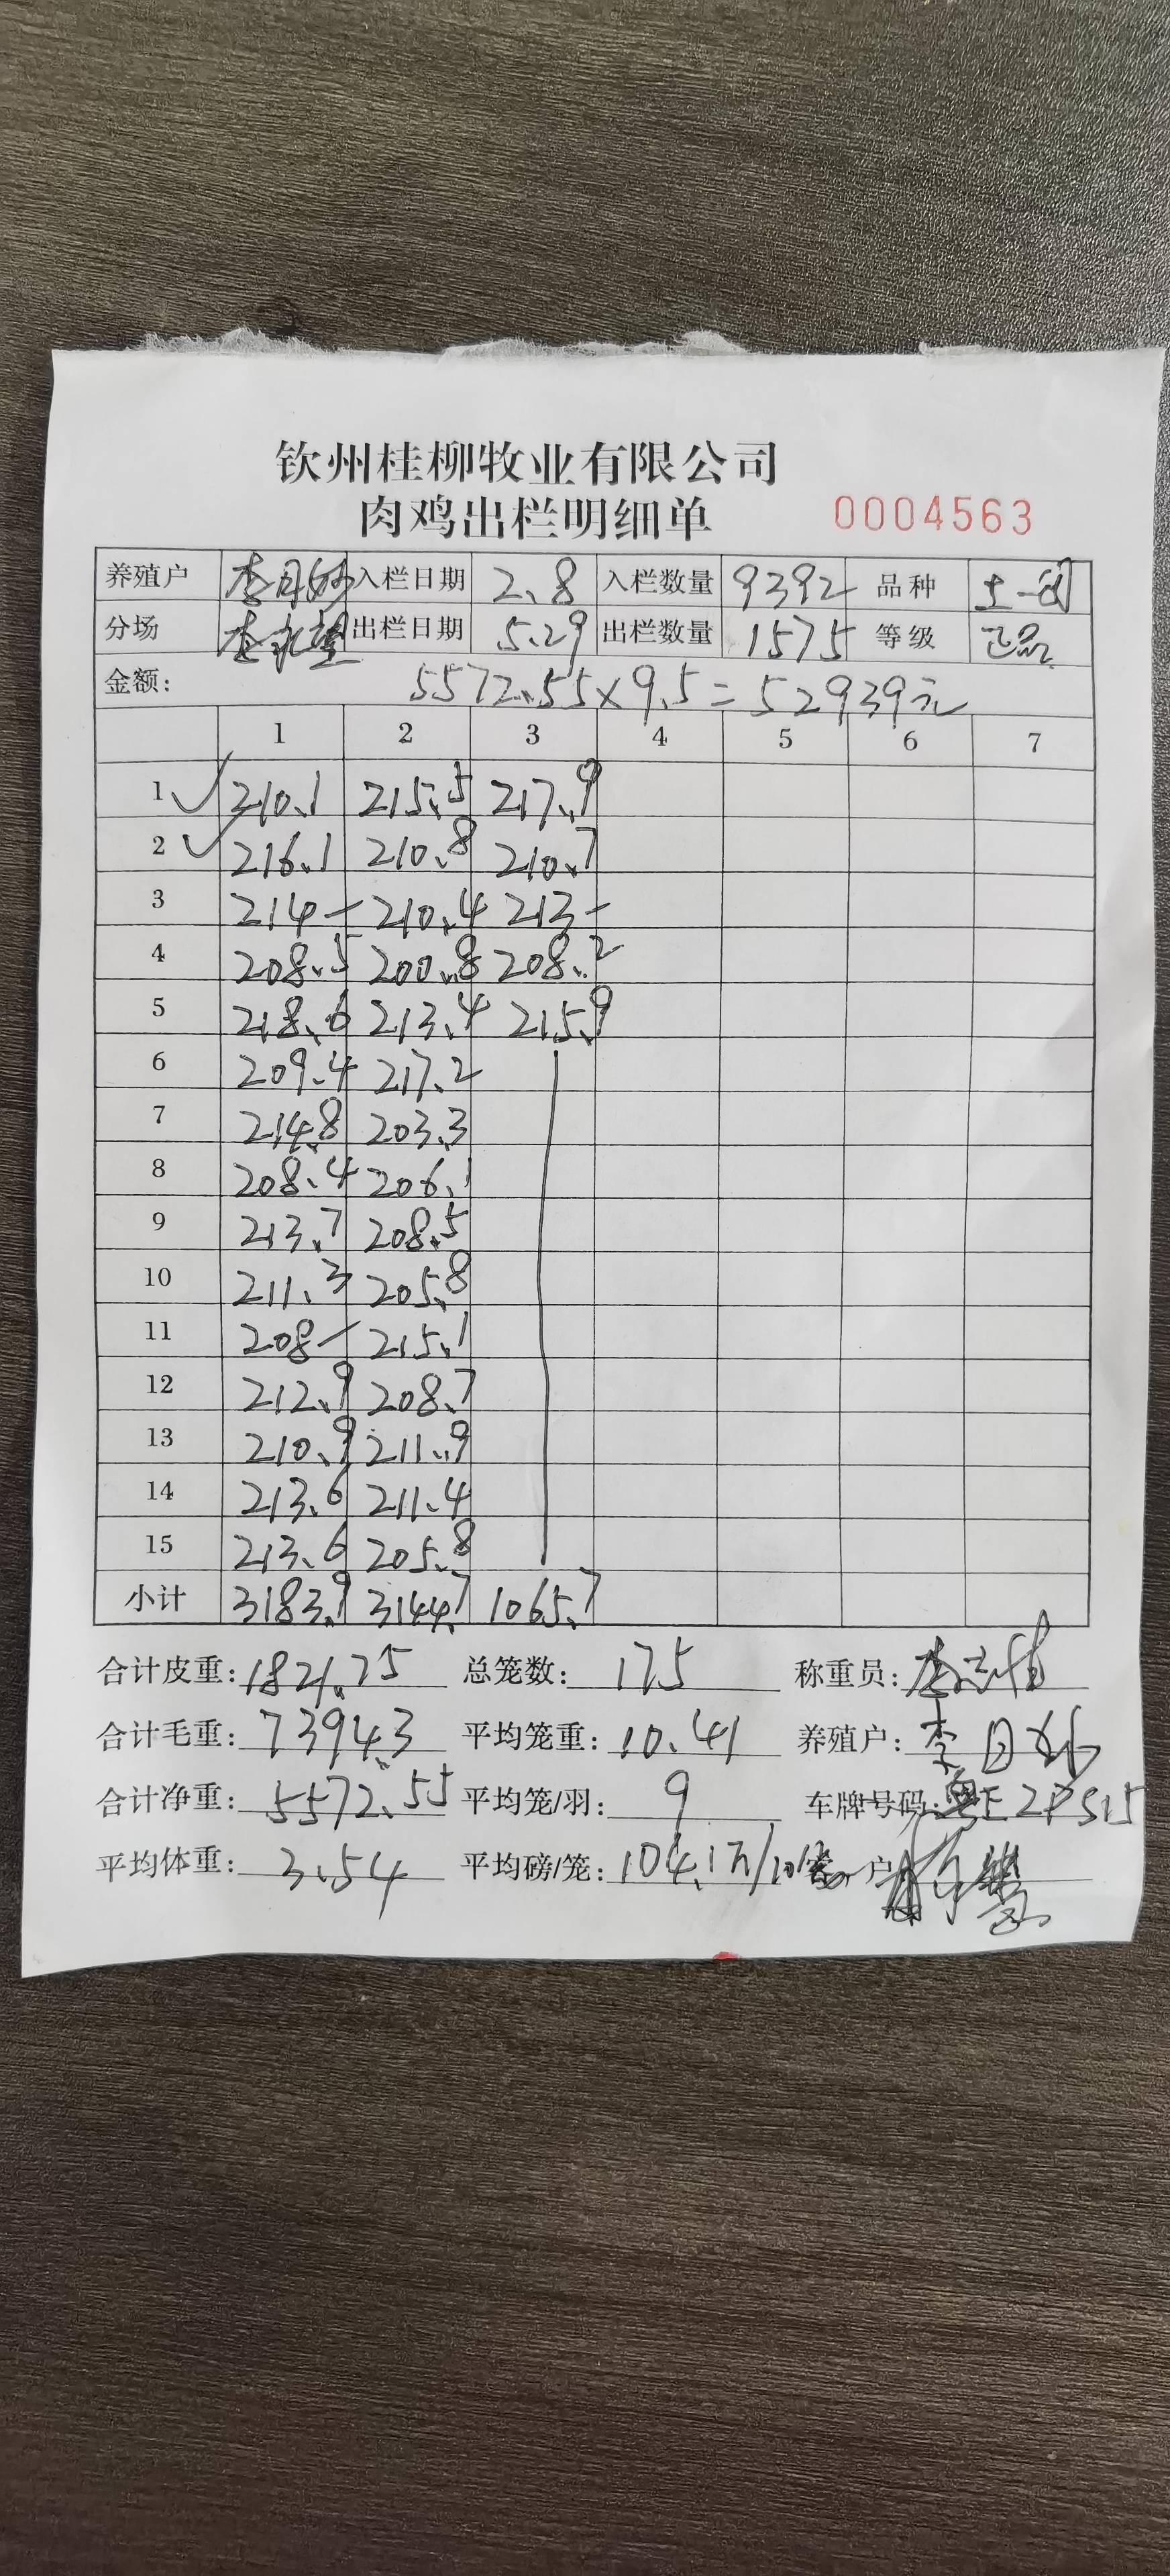 钦州桂柳牧业有限公司
肉鸡出栏明细单 0004563
养殖户 李月妙 入栏日期 2.8 入栏数量 9392 品种 土一
分场 李永望 出栏日期 5.29 出栏数量 1575 等级 正品
金额: 5572.55×9.5=52939元
1 2 3 4 5 6 7
1 210.1 215.5 217.9
2 216.1 210.8 210.7
3 214- 210.4 213-
4 208.5 200.8 208.2
5 218.6 213.4 215.9
6 209.4 217.2
7 214.8 203.3
8 208.4 206.1
9 213.7 208.5
10 211.3 205.8
11 208- 215.1
12 212.9 208.7
13 210.9 211.9
14 213.6 211.4
15 213.6 205.8
小计 3183.9 3144.7 1065.7
合计皮重: 1821.75 总笼数: 175 称重员:
合计毛重: 7394.3 平均笼重: 10.41 养殖户: 李月妙
合计净重: 5572.55 平均笼/羽: 9 车牌号码: 粤E2PS15
平均体重: 3.54 平均磅/笼: 104.1元/10 户